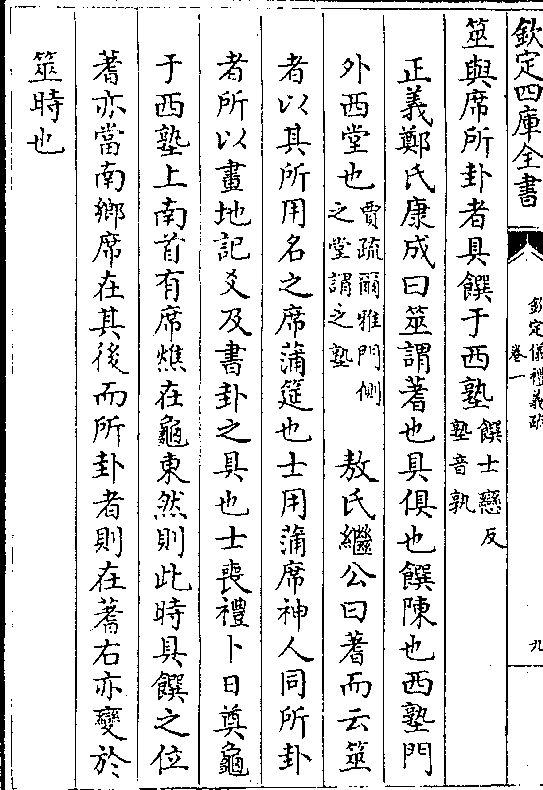 欽定四庫全書
欽定儀禮義疏
卷一
九
筮與席所卦者具饌于西塾饌士戀反塾音孰
正義鄭氏康成曰筮謂蓍也具俱也饌陳也西塾門
外西堂也賈疏爾雅門側之堂謂之塾 敖氏繼公曰蓍而云筮
者以其所用名之席蒲筵也士用蒲席神人同所卦
者所以畫地記爻及書卦之具也士喪禮卜日奠龜
于西塾上南首有席燋在龜東然則此時具饌之位
蓍亦當南鄉席在其後而所卦者則在蓍右亦變於
筮時也